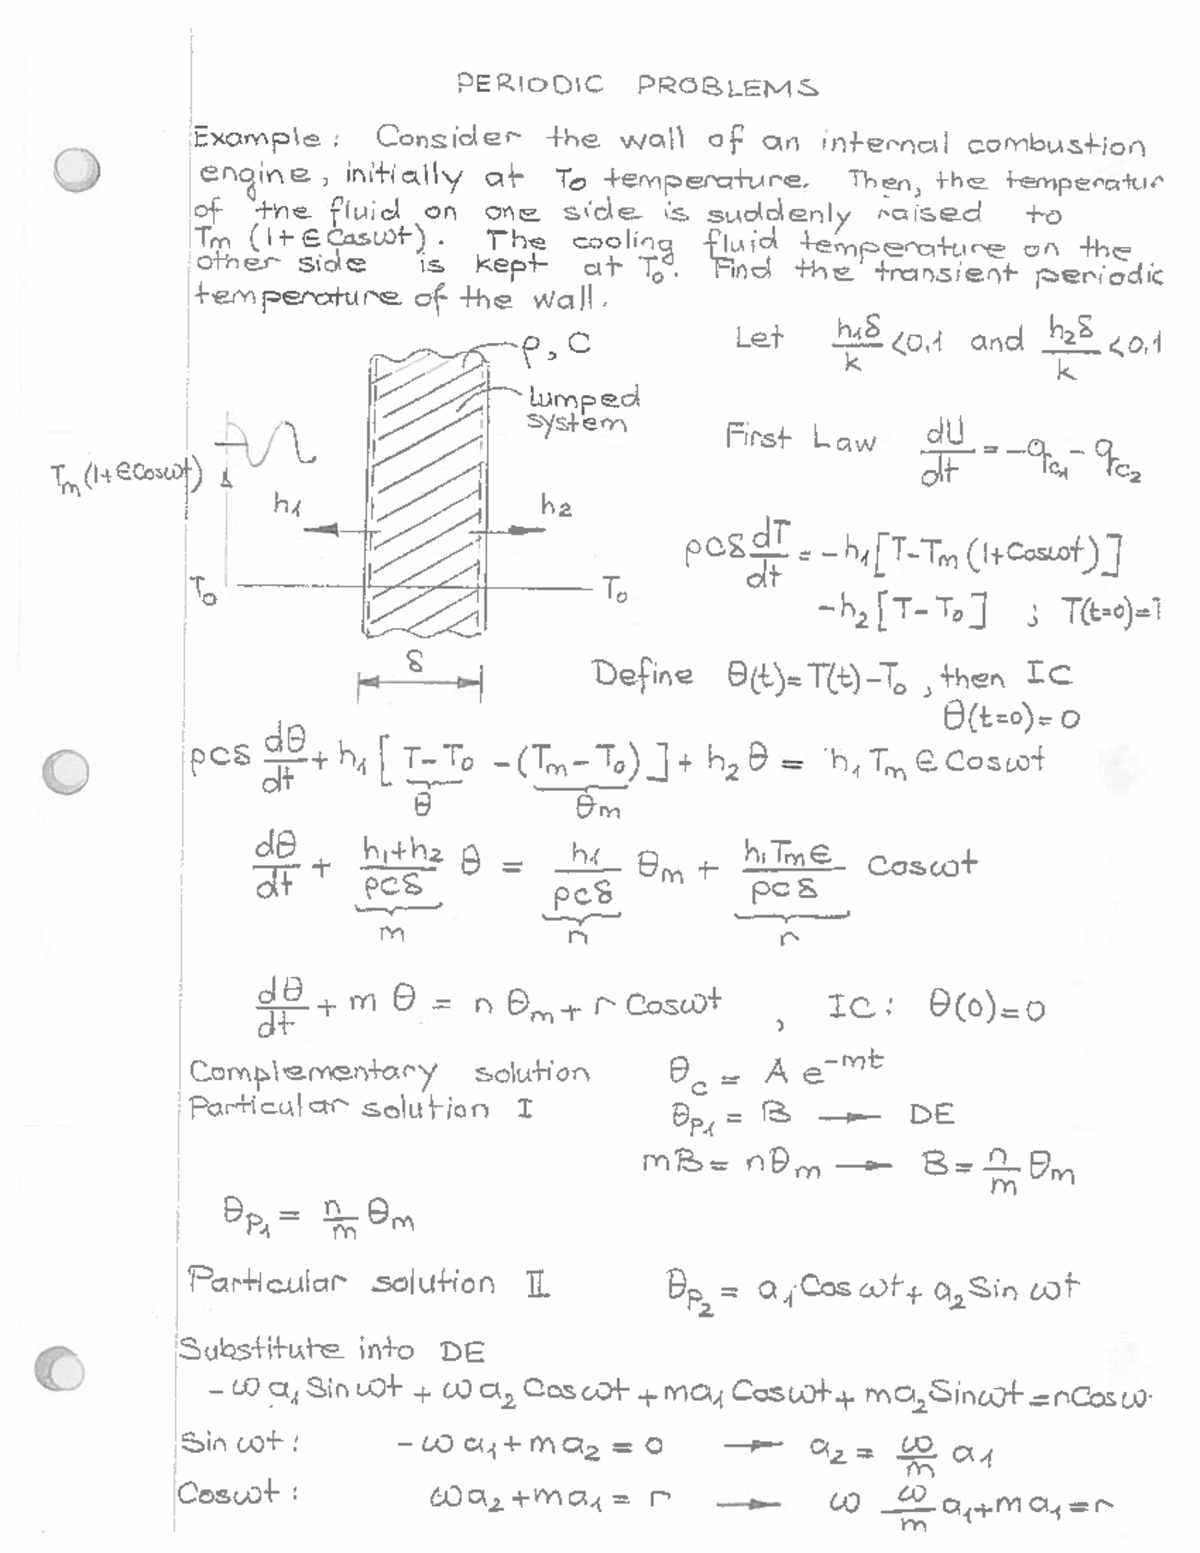 PERIODIC PROBLEMS
Example: Consider the wall of an internal combustion
engine, initially at To temperature. Then, the temperatur
of the fluid on one side is suddenly raised to
Tm (1+ϵCosωt). The cooling fluid temperature on the
other side is kept at To. Find the transient periodic
temperature of the wall.
Let h₁δ/k <0,1 and h₂δ/k <0,1
ρ, C
lumped
system
First Law dU/dt = -q_c₁ - q_c₂
Tm(1+ϵCosωt)
h₁
h₂
ρcδ dT/dt = -h₁[T-Tm(1+Cosωt)]
To
To
-h₂[T-To] ; T(t=0)=T
δ
Define θ(t)=T(t)-To, then IC
θ(t=0)=0
ρcδ dθ/dt + h₁[T-To -(Tm-To)] + h₂θ = h₁Tm ϵ Cosωt
θ θm
dθ/dt + (h₁+h₂)/ρcδ θ = h₁/ρcδ θm + h₁Tmϵ/ρcδ Cosωt
m n r
dθ/dt + m θ = n θm + r Cosωt , IC: θ(0)=0
Complementary solution θc = A e^-mt
Particular solution I θp₁ = B → DE
mB = nθm → B = n/m θm
θp₁ = n/m θm
Particular solution II θp₂ = a₁Cosωt + a₂Sin ωt
Substitute into DE
-ωa₁Sinωt + ωa₂Cosωt + ma₁Cosωt + ma₂Sinωt = rCosω
Sin ωt: -ωa₁+ma₂ = 0 → a₂ = ω/m a₁
Cosωt: ωa₂+ma₁ = r → ω ω/m a₁+ma₁=r